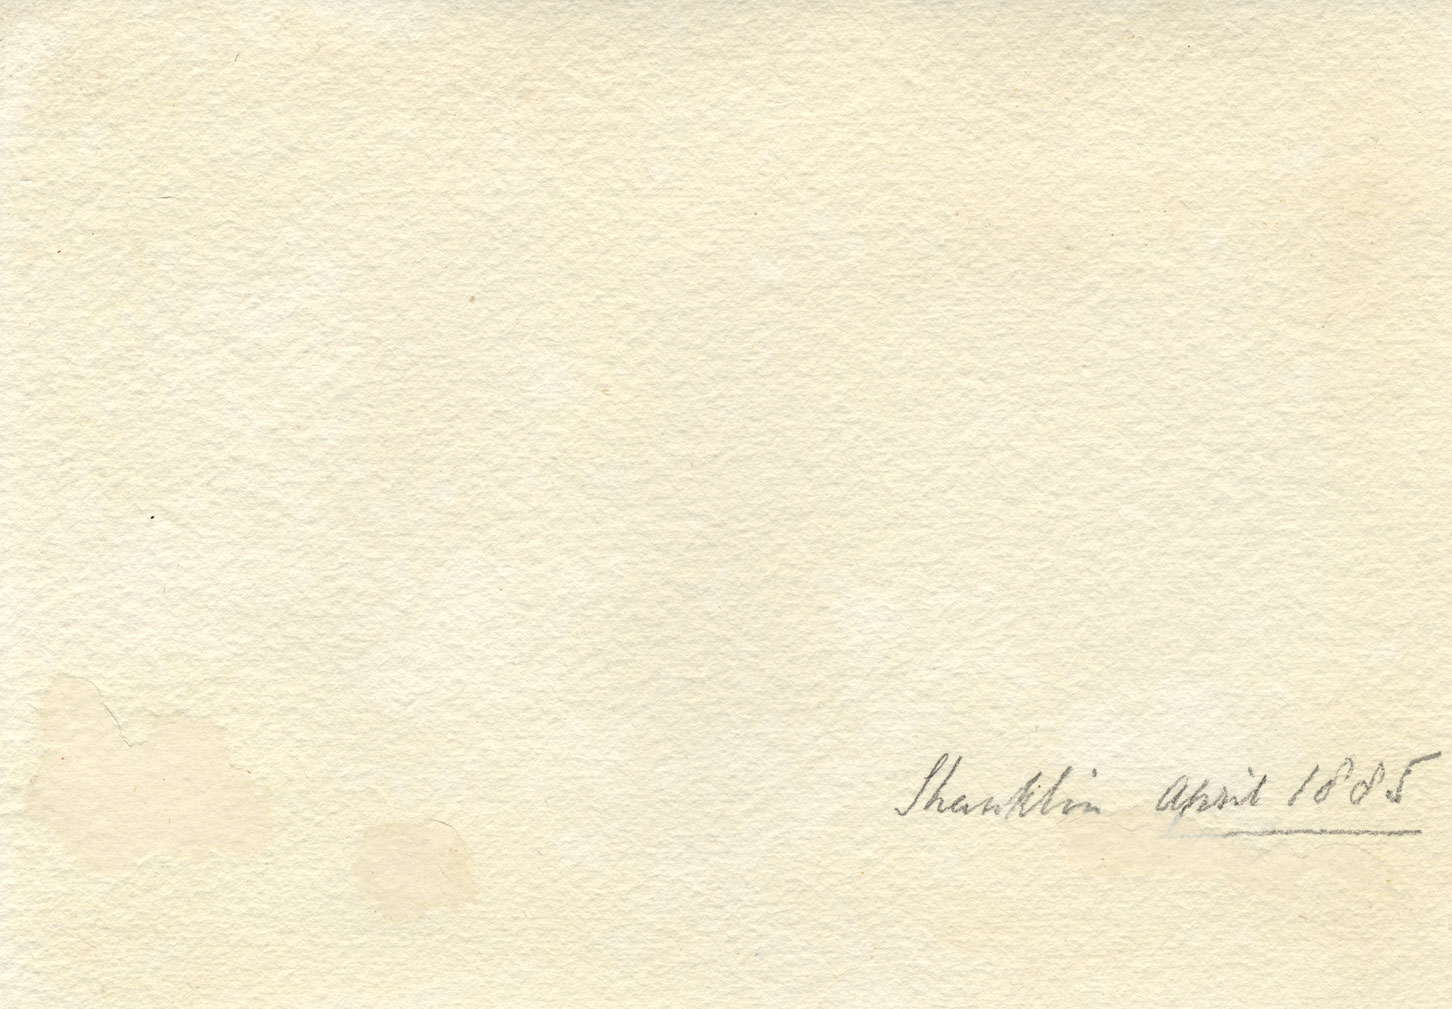 Shanklin April 1885